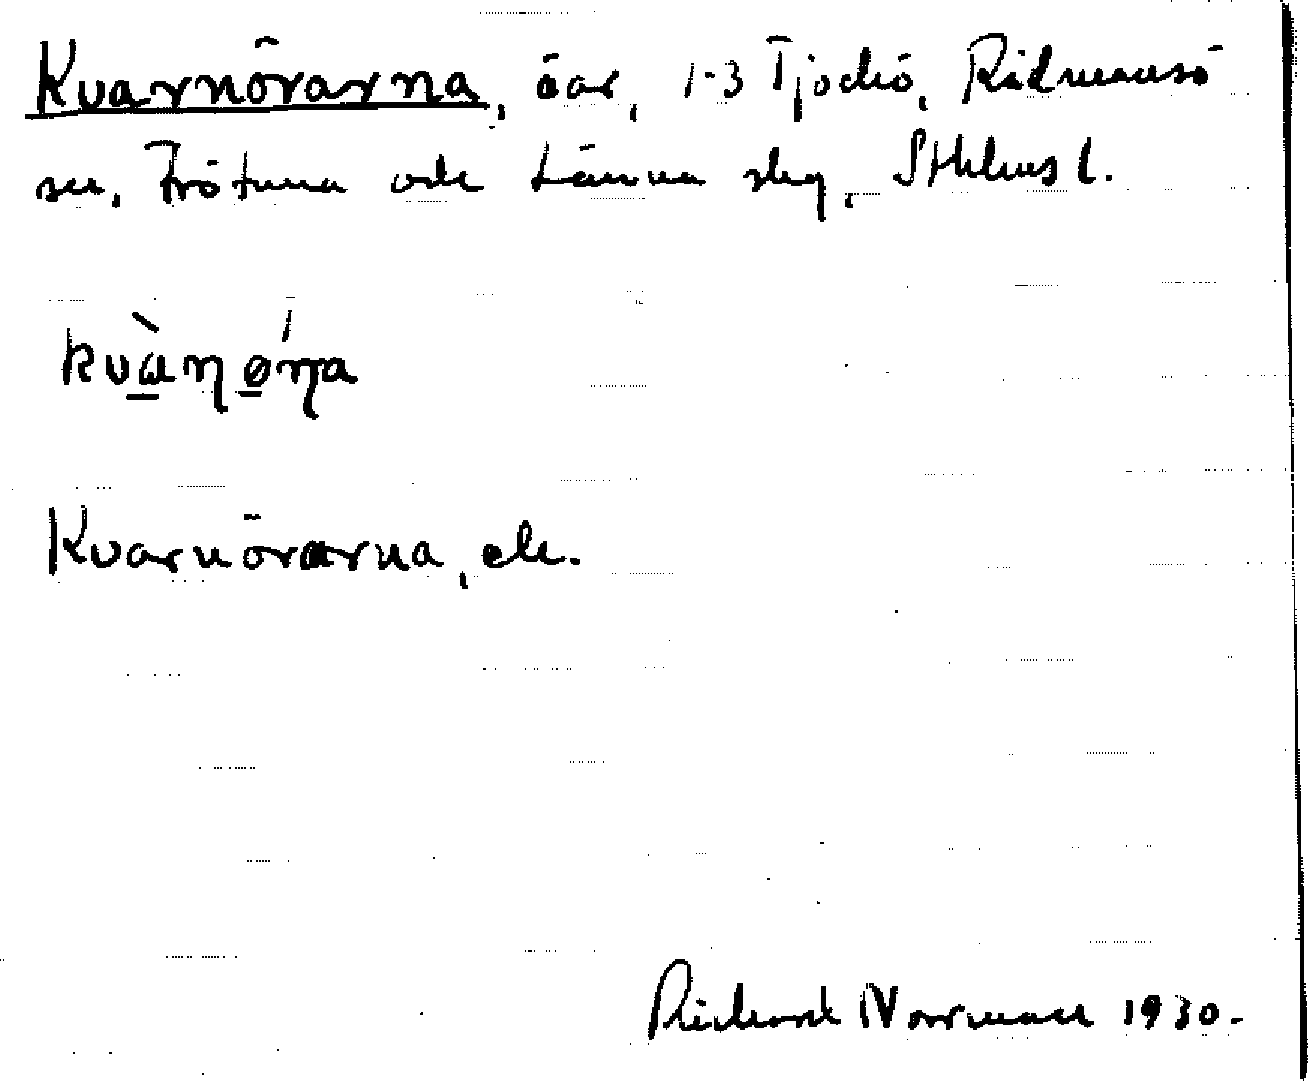 Kvarnörarna, öar, 1-3 Tjockö, Rådmansö
sn, Frötuna och Länna slg, Sthlms l.
Kvarnörarna, ek.
Rickard Norrman 1930.